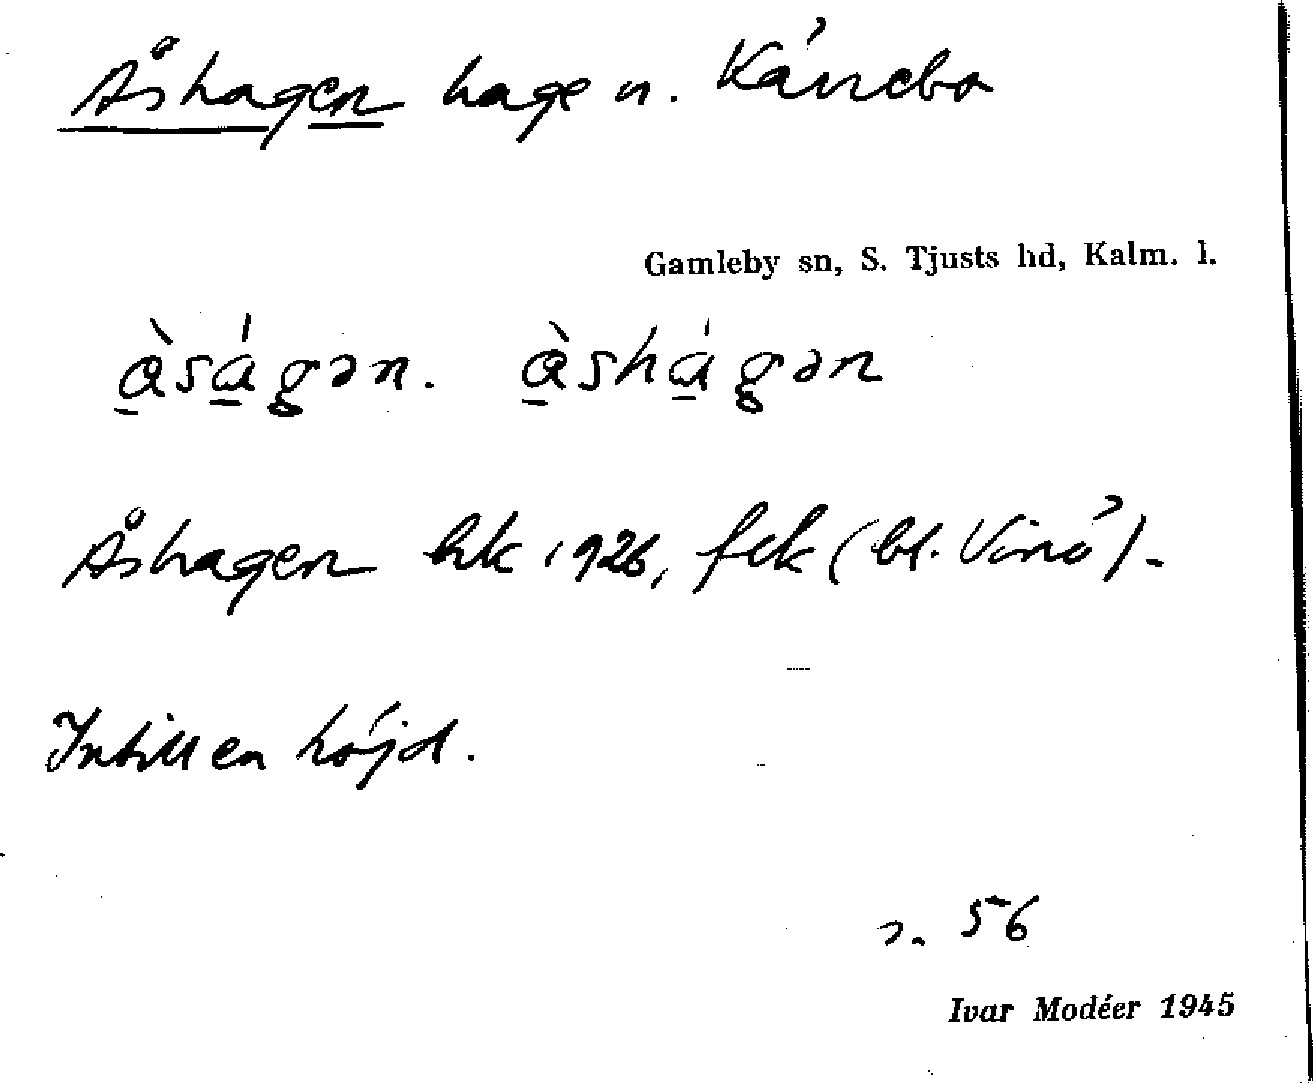 Åshagen hage n. Kårrebo
Gamleby sn, S. Tjusts hd, Kalm. l.
à̱sá̱gən. à̱shá̱gən
Åshagen hk 1926, fek (bl. Vinö).
Intill en höjd.
s. 56
Ivar Modéer 1945